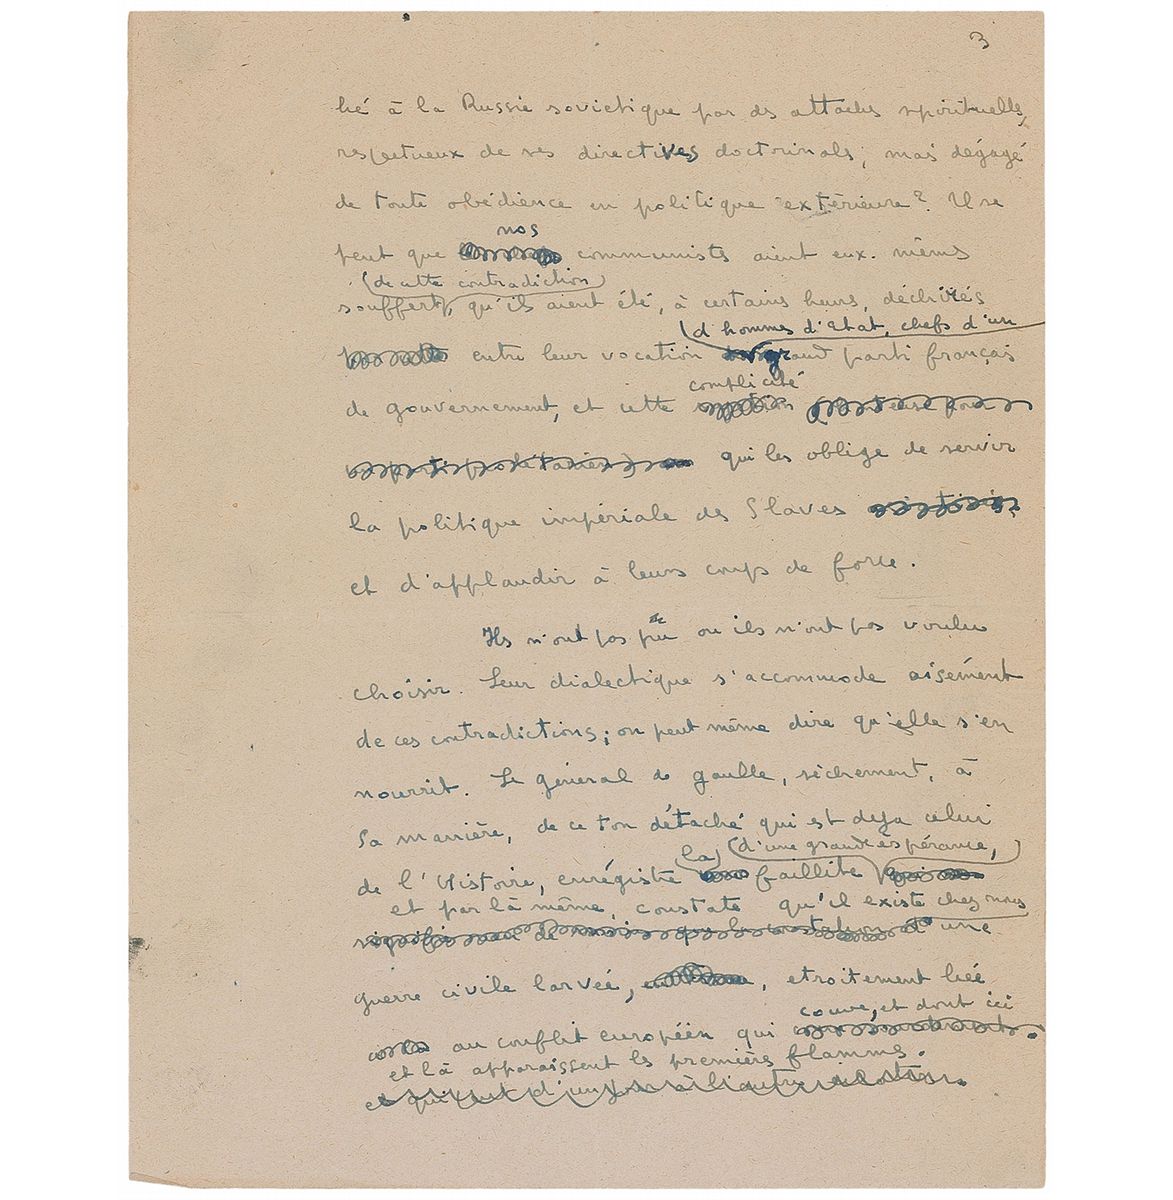 3
lié à la Russie soviétique par des attaches spirituelles,
respectueux de ses directives doctrinales, mais dégagé
de toute obédience en politique extérieure? Il se
nos
peut que communistes aient eux-mêmes
(de cette contradiction)
souffert, qu'ils aient été, à certaines heures, déchirés
(d'hommes d'Etat, chefs d'un
entre leur vocation grand parti français
complicité
de gouvernement, et cette
qui les oblige de servir
la politique impériale des Slaves
et d'applaudir à leurs coups de force.
Ils n'ont pas pu ou ils n'ont pas voulu
choisir. Leur dialectique s'accommode aisément
de ces contradictions; on peut même dire qu'elle s'en
nourrit. Le général de gaulle, sèchement, à
sa manière, de ce ton détaché qui est deja celui
(la) (d'une grande espérance,)
de l'Histoire, enrégistre faillite
et par là même, constate qu'il existe chez nous
une
guerre civile larvée, , etroitement liée
couve, et dont ici
au conflit européen qui
et là apparaissent les premières flammes.